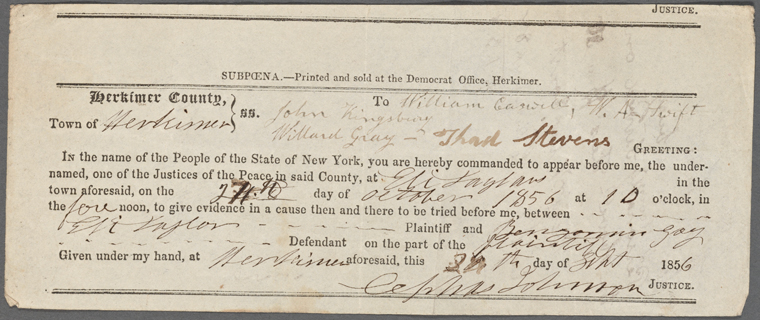 JUSTICE.
SUBPŒNA.—Printed and sold at the Democrat Office, Herkimer.
Herkimer County, } ss. To William Caswell, W. A. Swift
Town of Herkimer John Kingsbury
Willard Gray – Thad Stevens GREETING:
In the name of the People of the State of New York, you are hereby commanded to appear before me, the under-
named, one of the Justices of the Peace in said County, at Eli Taylors in the
town aforesaid, on the day of October 1856 at 10 o'clock, in
the fore noon, to give evidence in a cause then and there to be tried before me, between
Eli Taylor Plaintiff and Benjamin Gay
Defendant on the part of the plaintiff
Given under my hand, at Herkimer aforesaid, this 24th day of 1856
Cephas Johnson JUSTICE.